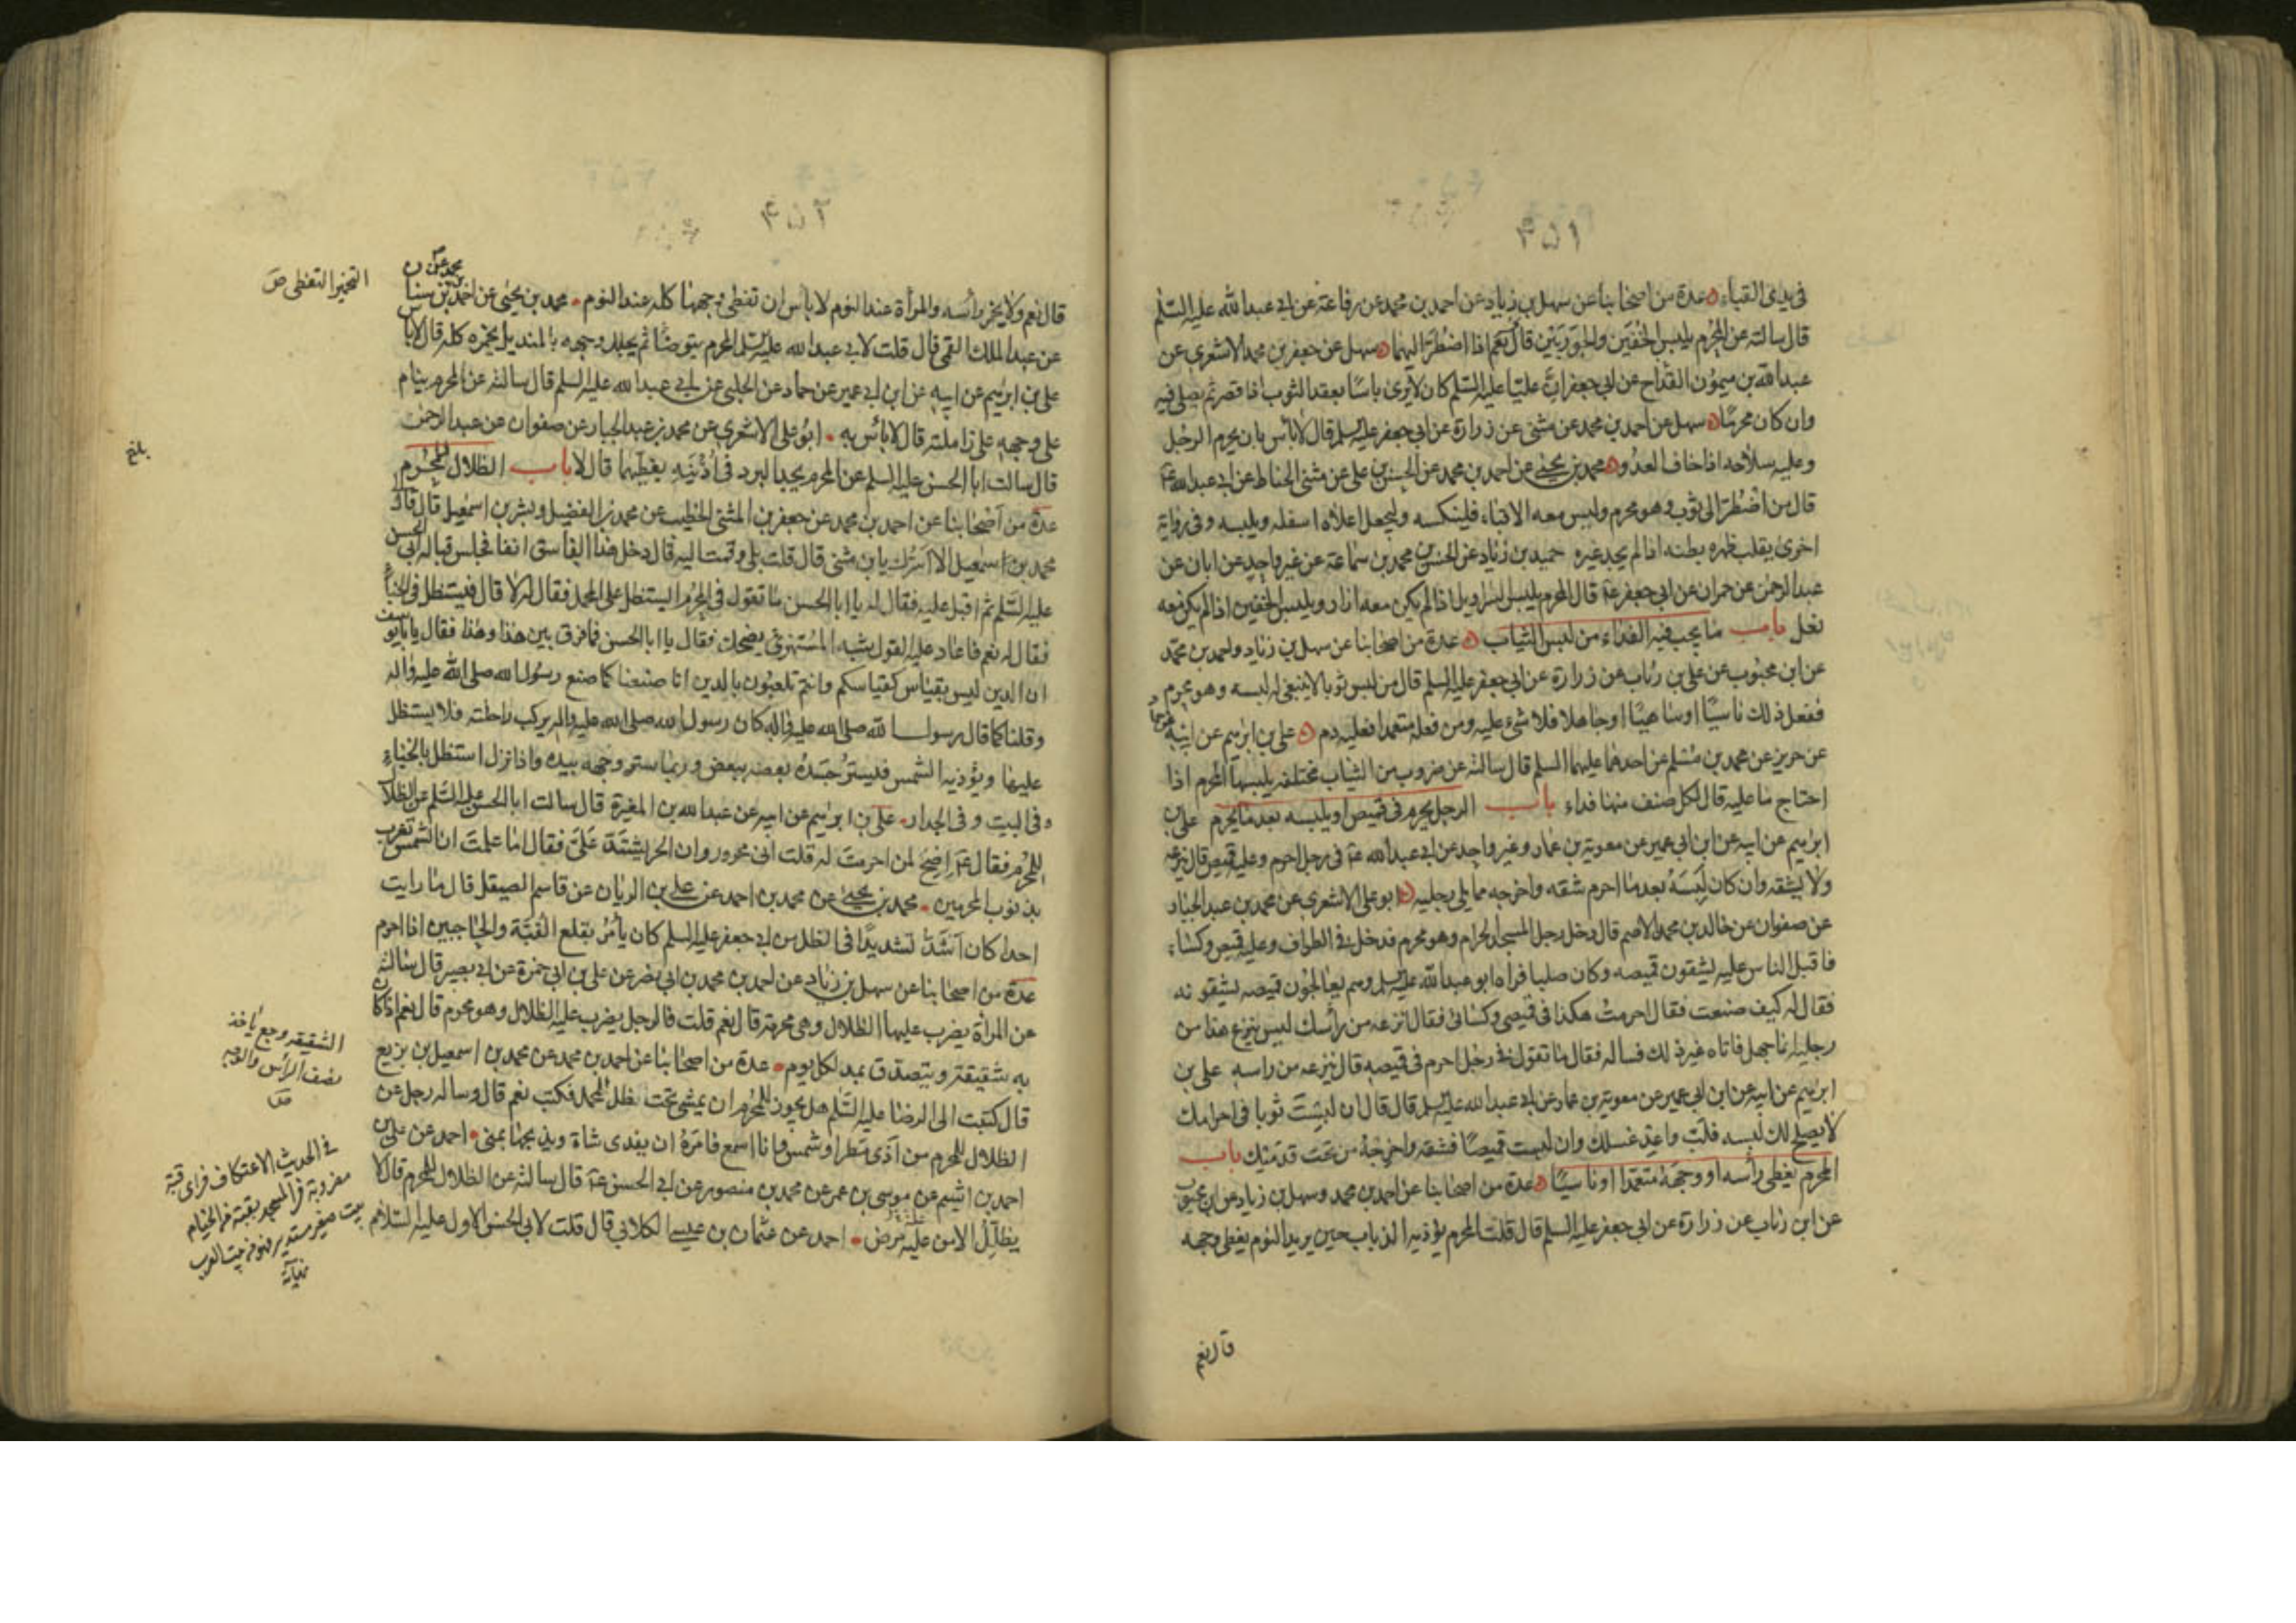 ۴۵۱
فى يدى القباء عدة من اصحابنا عن سهل بن زياد عن احمد بن محمد عن رفاعة عن ابى عبد الله عليه السّلم
قال سالته عن المُحْرِم يلبس الخُفّين والجوَرَبَيْن قال نَعَم اذا اضْطُرَّ اليهما سهل عن جعفر بن محمد الاشعرى عن
عبد الله بن ميمُون القدّاح عن ابى جعفر انّ عليّا عليه السّلم كان لا يرى باسًا بعقد الثوب اذا قصر ثم يصلى فيه
وان كان محرمًا سهل عن احمد بن محمد عن مثنى عن زرارة عن ابى جعفر عليه السلم قال لا باس بان يحرم الرجُل
وعليه سلاحه اذا خاف العدُو محمد بن يحيى عن احمد بن محمد عن الحسن بن على عن مثنى الحناط عن ابى عبد الله عۤ
قال من اضْطُرّ الى ثوْب وهو محرم وليس معه الا قباء فلينكسه وليجعل اعلاه اسفله ويلبسه وفى رواية
اخرى يقلب ظهره بطنه اذا لم يجد غيره حميد بن زياد عن الحسن بن محمد بن سماعة عن غير واحدٍ عن ابان عن
عبد الرحمن عن حمران عن ابى جعفر عۤ قال المحرم يلبس السّراويل اذا لم يكن معه ازار ويلبس الخفين اذا لم يكن معه
نعل باب ما يجب فيه الفداء من لبس الثياب عدة من اصحابنا عن سهل بن زياد واحمد بن محمّد
عن ابن محبُوب عن على بن رئاب عن زرارة عن ابى جعفر عليه السلم قال من لبس ثوبا لا ينبغى له لبسه وهو محرم
ففعل ذلك ناسيًا او ساهيًا او جاهلا فلا شئ عليه ومن فعله متعمدا فعليه دم على بن ابرٰهيم عن ابيه
عن حريز عن محمد بن مُسْلم عن احدهما عليهما السلم قال سالته عن ضروب من الثياب مختلفه يلبسها المحرم اذا
احتاج ما عليه قال لكل صنف منها فداء باب الرجل يحرم فى قميص او يلبسه بعد ما يحرم على بن
ابرٰهيم عن ابيه عن ابن ابى عمير عن معٰوية بن عمار وغير واحد عن ابى عبد الله عۤ فى رجل احرم وعليه قميص قال ينزعه
ولا يشقه وان كان لَبِسَهُ بعد ما احرم شقه واخرجه مما يلى رجليه ابو على الاشعرى عن محمد بن عبد الجبار
عن صفوان عن خالد بن محمد الاصم قال دخل رجل المسجد الحرام وهو محرم فدخل فى الطواف وعليه قميص وكساء
فاقبل الناس عليه يشقون قميصه وكان صلبا فراه ابو عبد الله عليه السلم وهم يعالجُون قميصه يشقونه
فقال له كيف صنعت فقال احرمتُ هكذا فى قميصى وكسائى فقال انزعه من رأسك ليس ينزع هذا من
رجليه انما جهل فاتاه غير ذلك فساله فقال ما تقول فى رجُل احرم فى قميصه قال ينزعه من راسه على بن
ابرٰهيم عن ابيه عن ابن ابى عمير عن معٰوية بن عمار عن ابى عبد الله عليه السلم قال قال ان لبِسْتَ ثوبا فى احرامك
لا يصلح لك لبسه فلَبّ واعِد غسلك وان لبست قميصًا فشقه واخرِجْهُ من تحت قدمَيْك باب
المحرم يغطى رأسه او وجهَهُ متعمدا او ناسيًا عدة من اصحابنا عن احمد بن محمد وسهل بن زياد عن ابن محبُوب
عن ابن رئاب عن زرارة عن ابى جعفر عليه السلم قال قلت المحرم يؤذيه الذباب حين يريد النوم يغطى وجهه
قال نعم
۴۵۲
قال نعم ولا يخمر رأسه والمرأة عند النوم لا باس ان تغطى وجهها كله عند النوم محمد بن يحيى عن احمد بن
عن عبد الملك القمى قال قلت لابى عبد الله عليه السلم المحرم يتوضّأ ثم يجلل وجهه بالمنديل يخمره كله قال لا باس
على بن ابرٰهيم عن ابيه عن ابن ابى عمير عن حماد عن الحلبى عن ابى عبد الله عليه السلم قال سالته عن المحرم ينام
على وجهه على زاملته قال لا بأس به ابوُ على الاشعرى عن محمد بن عبد الجبار عن صفوان عن عبد الرحمن
قال سالت ابا الحسن عليه السلم عن المحرم يجد البرد فى اُذُنَيْه يغطيهما قال لا باب الظلال للمُحْرِم
عدة من اصحابنا عن احمد بن محمد عن جعفر بن المثنى الخطيب عن محمد بن الفضيل وبشر بن اسمٰعيل قال قال لى
محمد بن اسمٰعيل الا اسُرّك يا بن مثنى قال قلت بلى وقمت اليه قال دخل هذا الفاسق انفا فجلس قبالة ابى الحسن
عليه السّلم ثم اقبل عليه فقال له يا ابا الحسن ما تقول فى المُحْرِم ايستظل على المحمد فقال له لا قال فيستظل فى الخباء
فقال له نعم فاعاد عليه القول شبه المُسْتهزئ يضحك فقال يا ابا الحسن فما فرق بين هذا وهذا فقال يا با يوسف
ان الدين ليس بقياس كقياسكم وانتم تلعبُون بالدين انا صنعنا كما صنع رسُول الله صلى الله عليه واله
وقلنا كما قال رسول الله صلى الله عليه واله كان رسول الله صلى الله عليه واله يركب راحلته فلا يستظل
عليها ويؤذيه الشمس فيسترُ جَسَدَهُ بعضه ببعض وربما ستر وجهه بيده واذا نزل استظل بالخباءِ
وفى البيت وفى الجدار على بن ابرٰهيم عن ابيه عن عبد الله بن المغيرة قال سالت ابا الحسن عليه السّلم عن الظلال
للمُحْرِم فقال عۤ اضح لمن احرمتَ له قلت انى محرور وان الحر يشتدّ عَلَىّ فقال اما علمتَ ان الشمس تغرب
بذنوب المحرمين محمد بن يحيى عن محمد بن احمد عن على بن الريان عن قاسم الصيقل قال ما رايت
احدا كان اشدّ تشديدًا فى الظل من ابى جعفر عليه السلم كان يأمُرُ بقلع القبّة والحاجبين اذا احرم
عدة من اصحابنا عن سهل بن زياد عن احمد بن محمد بن ابى نصر عن على بن ابى حمزة عن ابى بصير قال سالته
عن المرأة يضرب عليها الظلال وهى محرمة قال نعم قلت فالرجل يضرب عليه الظلال وهو محرم قال نعم اذا كان
به شقيقة ويتصدق بمد لكل يوم عدة من اصحابنا عن احمد بن محمد عن محمد بن اسمعيل بن بزيع
قال كتبت الى الرضا عليه السّلم هل يجوز للمُحْرِم ان يمشى تحت ظل المحمد فكتب نعم قال وساله رجل عن
الظلال للمحرم من اَذى مَطَر او شمس وانا اسمع فامَرهُ ان يفدى شاة ويذبحها بمنى احمد عن على بن
احمد بن اشيم عن موسى بن عمر عن محمد بن منصور عن ابى الحسن عۤ قال سالته عن الظلال للمحرم قال لا
يظلّل الا من علّة مرض احمد عن عثمان بن عيسى الكلابى قال قلت لابى الحسن الاول عليه السّلام
التخمير التغطى ص
بلغ
الشقيقه وجع ياخذ
نصف الرأس والوجه
ص
فى الحديث الاعتكاف فراى قبة
مضروبة فى المسجد القبة من الخيام
بيت صغير مستدير وهو من بيوت العرب
نهاية